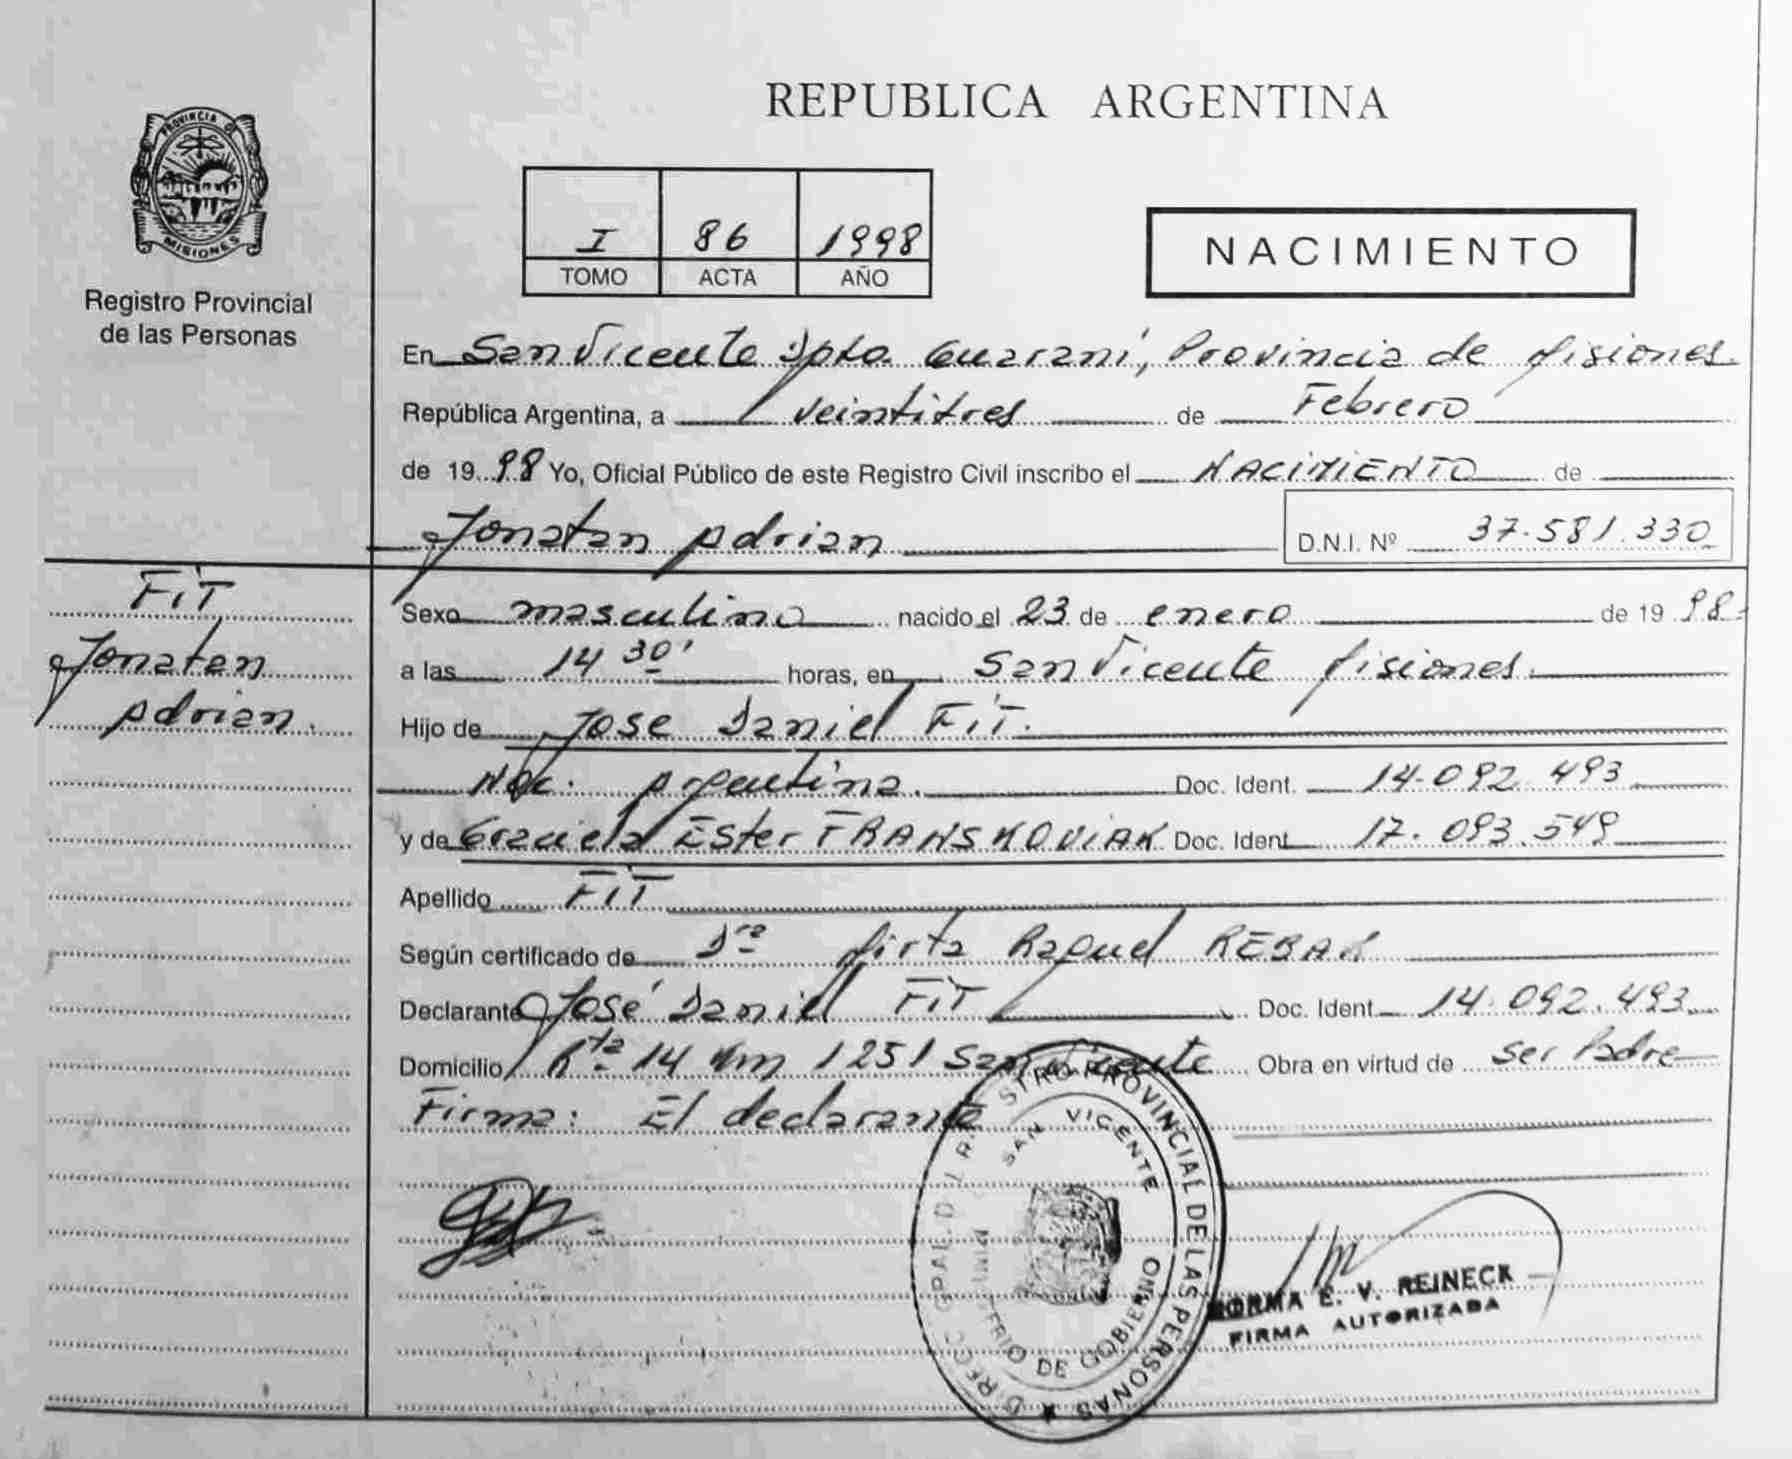 PROVINCIA DE
MISIONES
Registro Provincial
de las Personas
REPUBLICA ARGENTINA
I 86 1998
TOMO ACTA AÑO
NACIMIENTO
En San Vicente Dpto. Guaraní, Provincia de Misiones.
República Argentina, a veintitres de Febrero
de 1998 Yo, Oficial Público de este Registro Civil inscribo el NACIMIENTO de
Jonatan Adrian D.N.I. Nº 37.581.330
FiT
Jonatan
Adrian.
Sexo masculino nacido el 23 de enero de 1998-
a las 14 30' horas, en San Vicente Misiones.
Hijo de Jose Daniel FiT.
Nac. Argentina. Doc. Ident. 14.092.493
y de Graciela Ester FRANSKOVIAK Doc. Ident 17.093.549
Apellido FiT
Según certificado de Dra Mirta Raquel REBAK
Declarante José Daniel FiT Doc. Ident 14.092.493
Domicilio Rta 14 Km 1251 San Vicente Obra en virtud de Ser Padre
Firma: El declarante
REGISTRO PROVINCIAL DE LAS PERSONAS
SAN VICENTE
DE GOBIERNO
NORMA E. V. REINECK
FIRMA AUTORIZADA